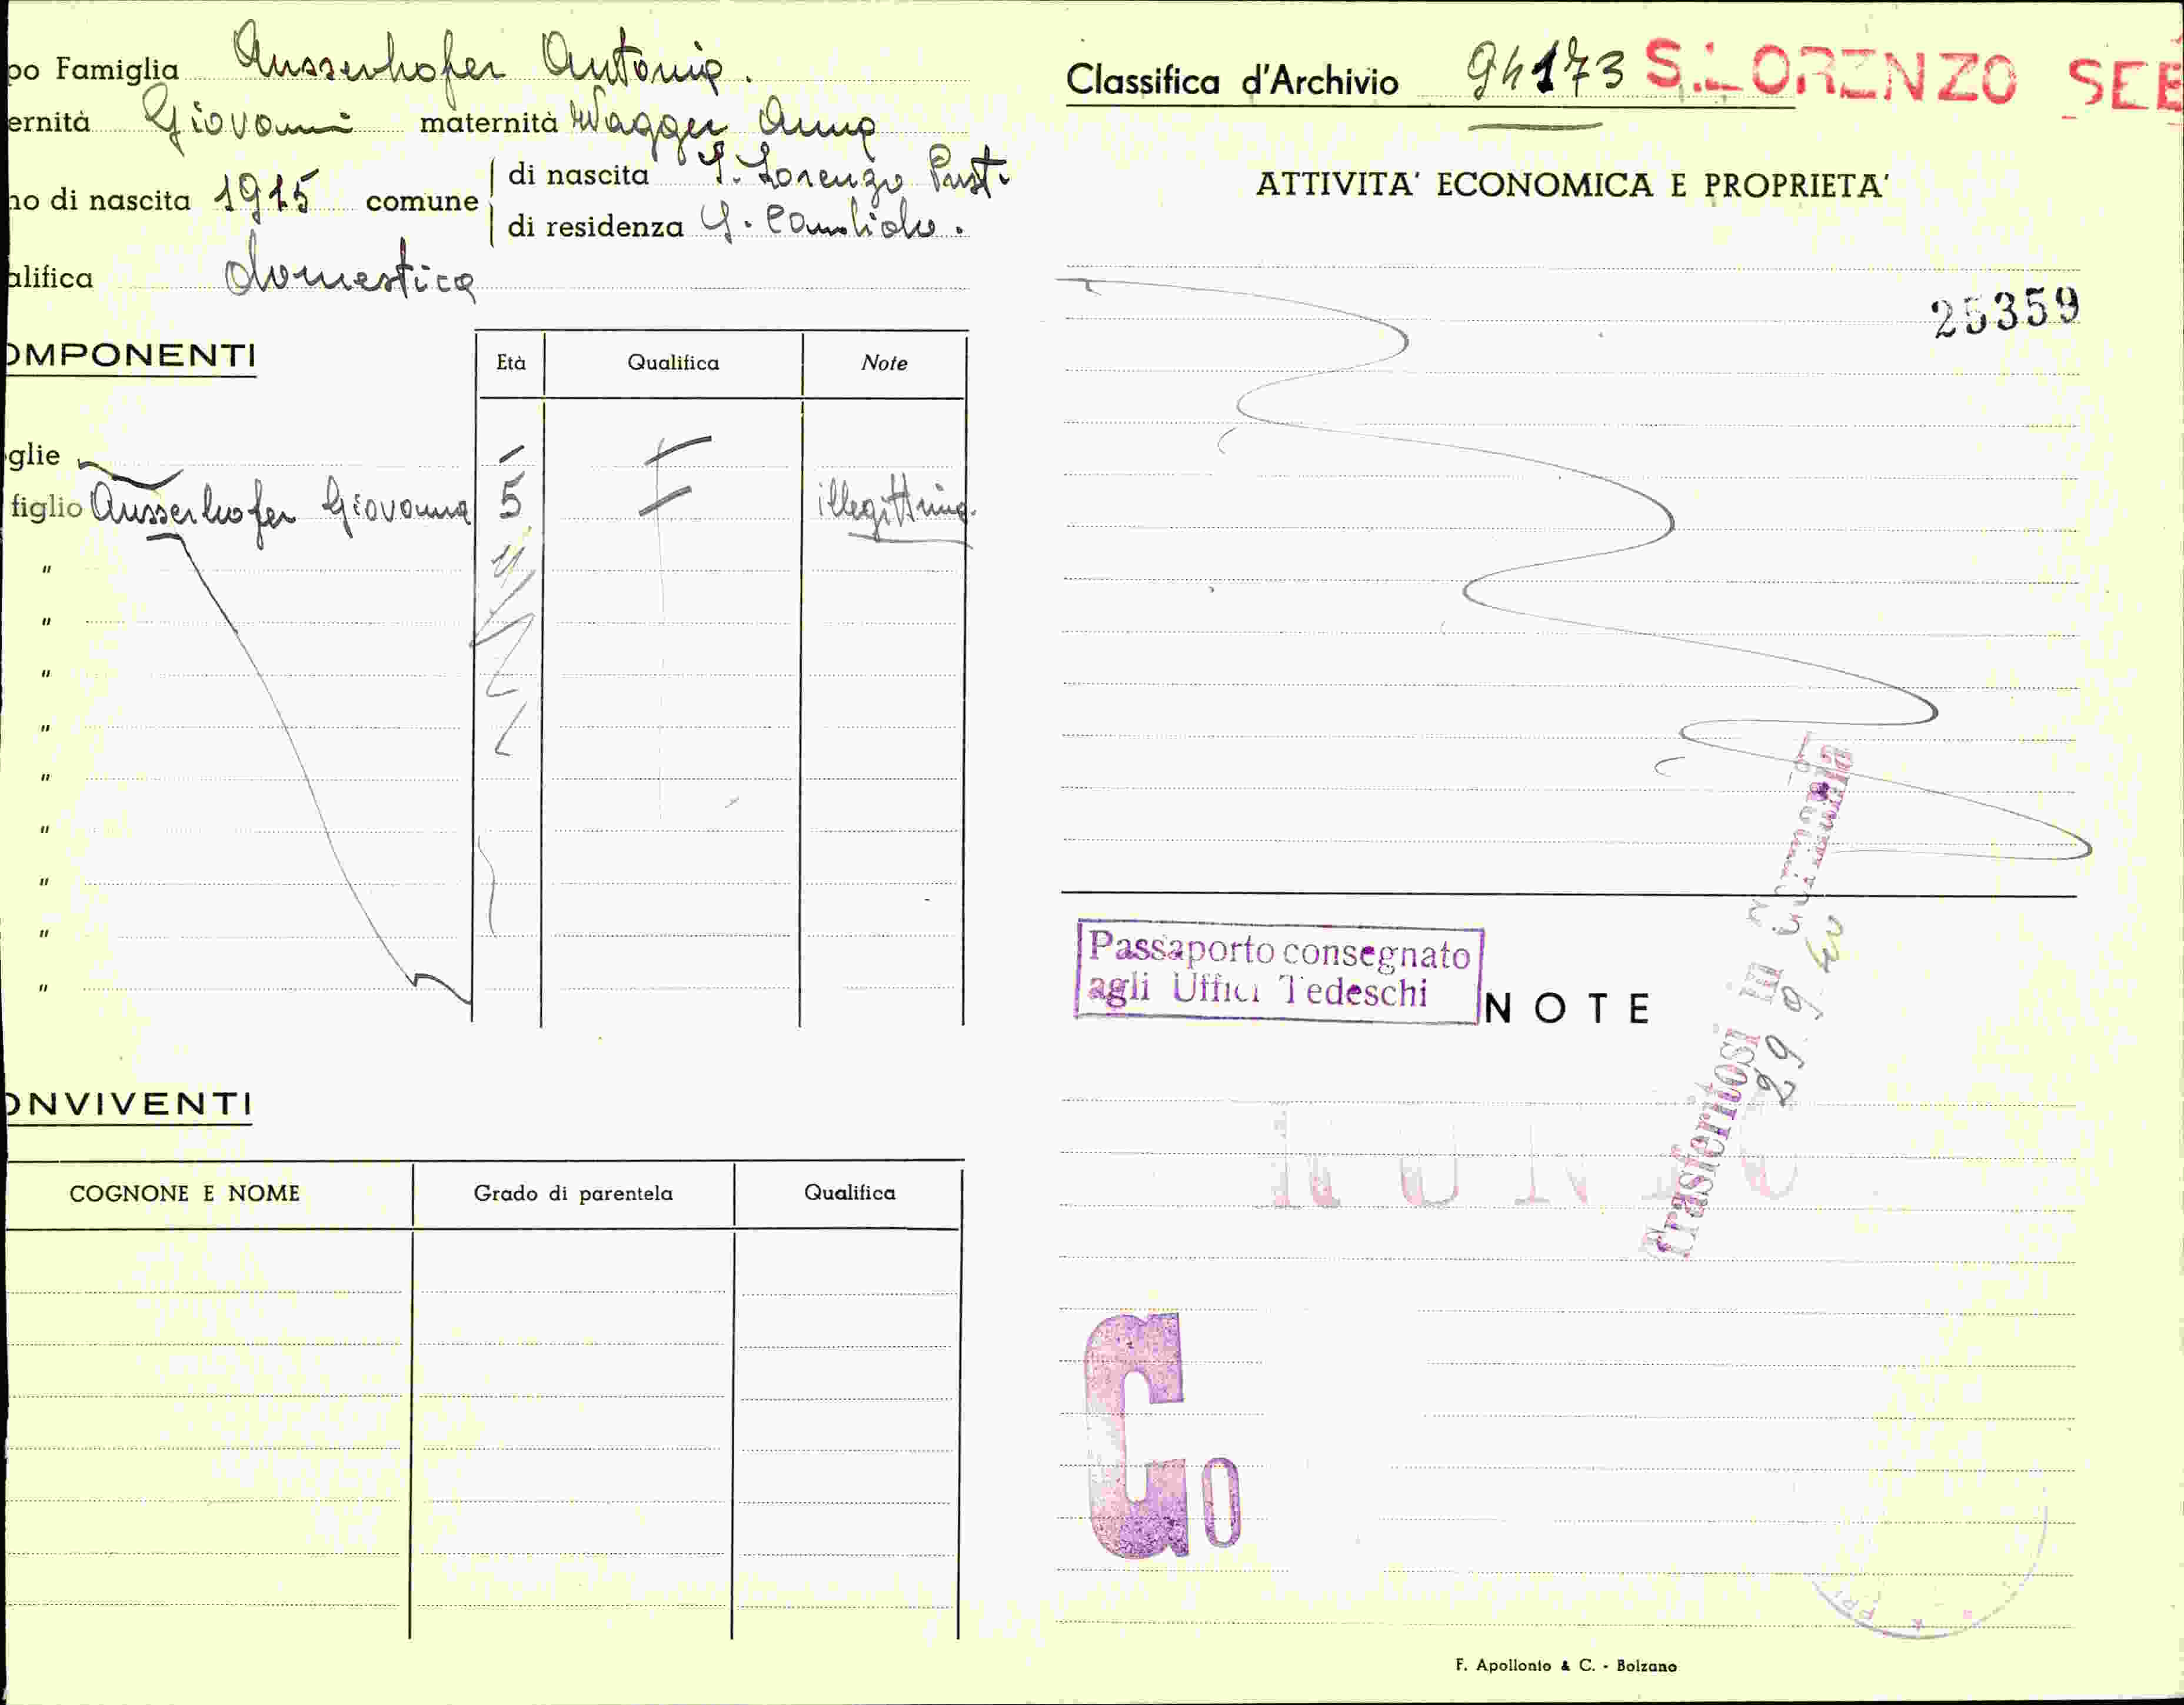 po Famiglia Ausserhofer Antonia.
ernità Giovanni maternità Wagger Anna
no di nascita 1915 comune di nascita S. Lorenzo Pust.
di residenza S. Candido.
alifica domestica
OMPONENTI
Età Qualifica Note
glie
figlio Ausserhofer Giovanna 5 illegittima.
"
"
"
"
"
"
"
"
"
ONVIVENTI
COGNONE E NOME Grado di parentela Qualifica
Classifica d'Archivio 94173 S.LORENZO SEB
ATTIVITA' ECONOMICA E PROPRIETA'
25359
Passaporto consegnato
agli Uffici Tedeschi
NOTE
Trasferitosi in Germania
29 9 40
Go
F. Apollonio & C. - Bolzano